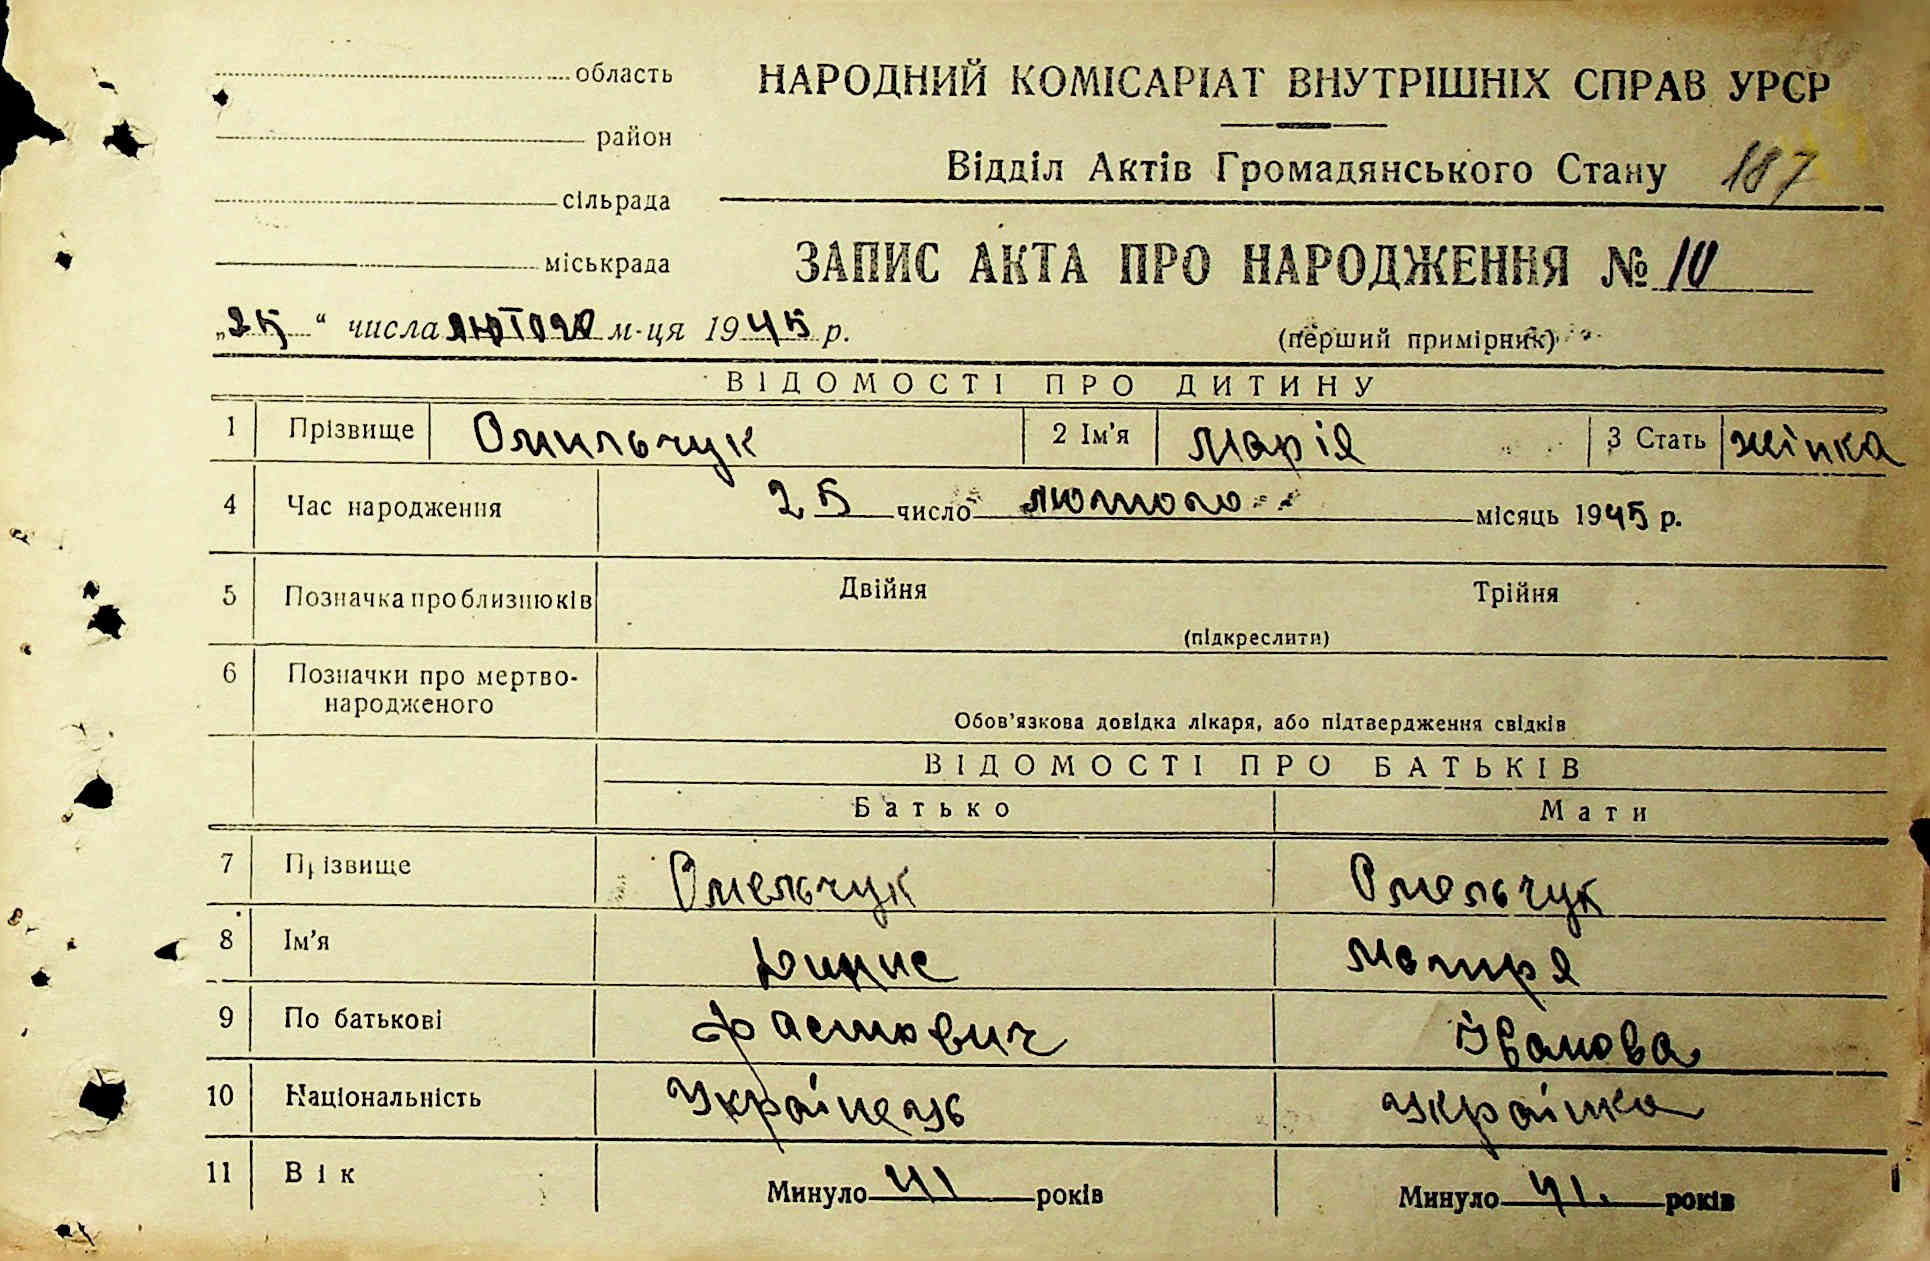 область
НАРОДНИЙ КОМІСАРІАТ ВНУТРІШНІХ СПРАВ УРСР
район
Відділ Актів Громадянського Стану 187
сільрада
міськрада
ЗАПИС АКТА ПРО НАРОДЖЕННЯ № 10
„25“ числа лютого м-ця 1945 р.
(перший примірник)
ВІДОМОСТІ ПРО ДИТИНУ
1 Прізвище Омильчук 2 Ім'я Марія 3 Стать жінка
4 Час народження 25 число лютого місяць 1945 р.
5 Позначка про близнюків Двійня Трійня
(підкреслити)
6 Позначки про мертво-
народженого
Обов'язкова довідка лікаря, або підтвердження свідків
ВІДОМОСТІ ПРО БАТЬКІВ
Батько Мати
7 Прізвище Омельчук Омельчук
8 Ім'я
9 По батькові Іванова
10 Національність Українець Українка
11 Вік Минуло 41 років Минуло 41. років